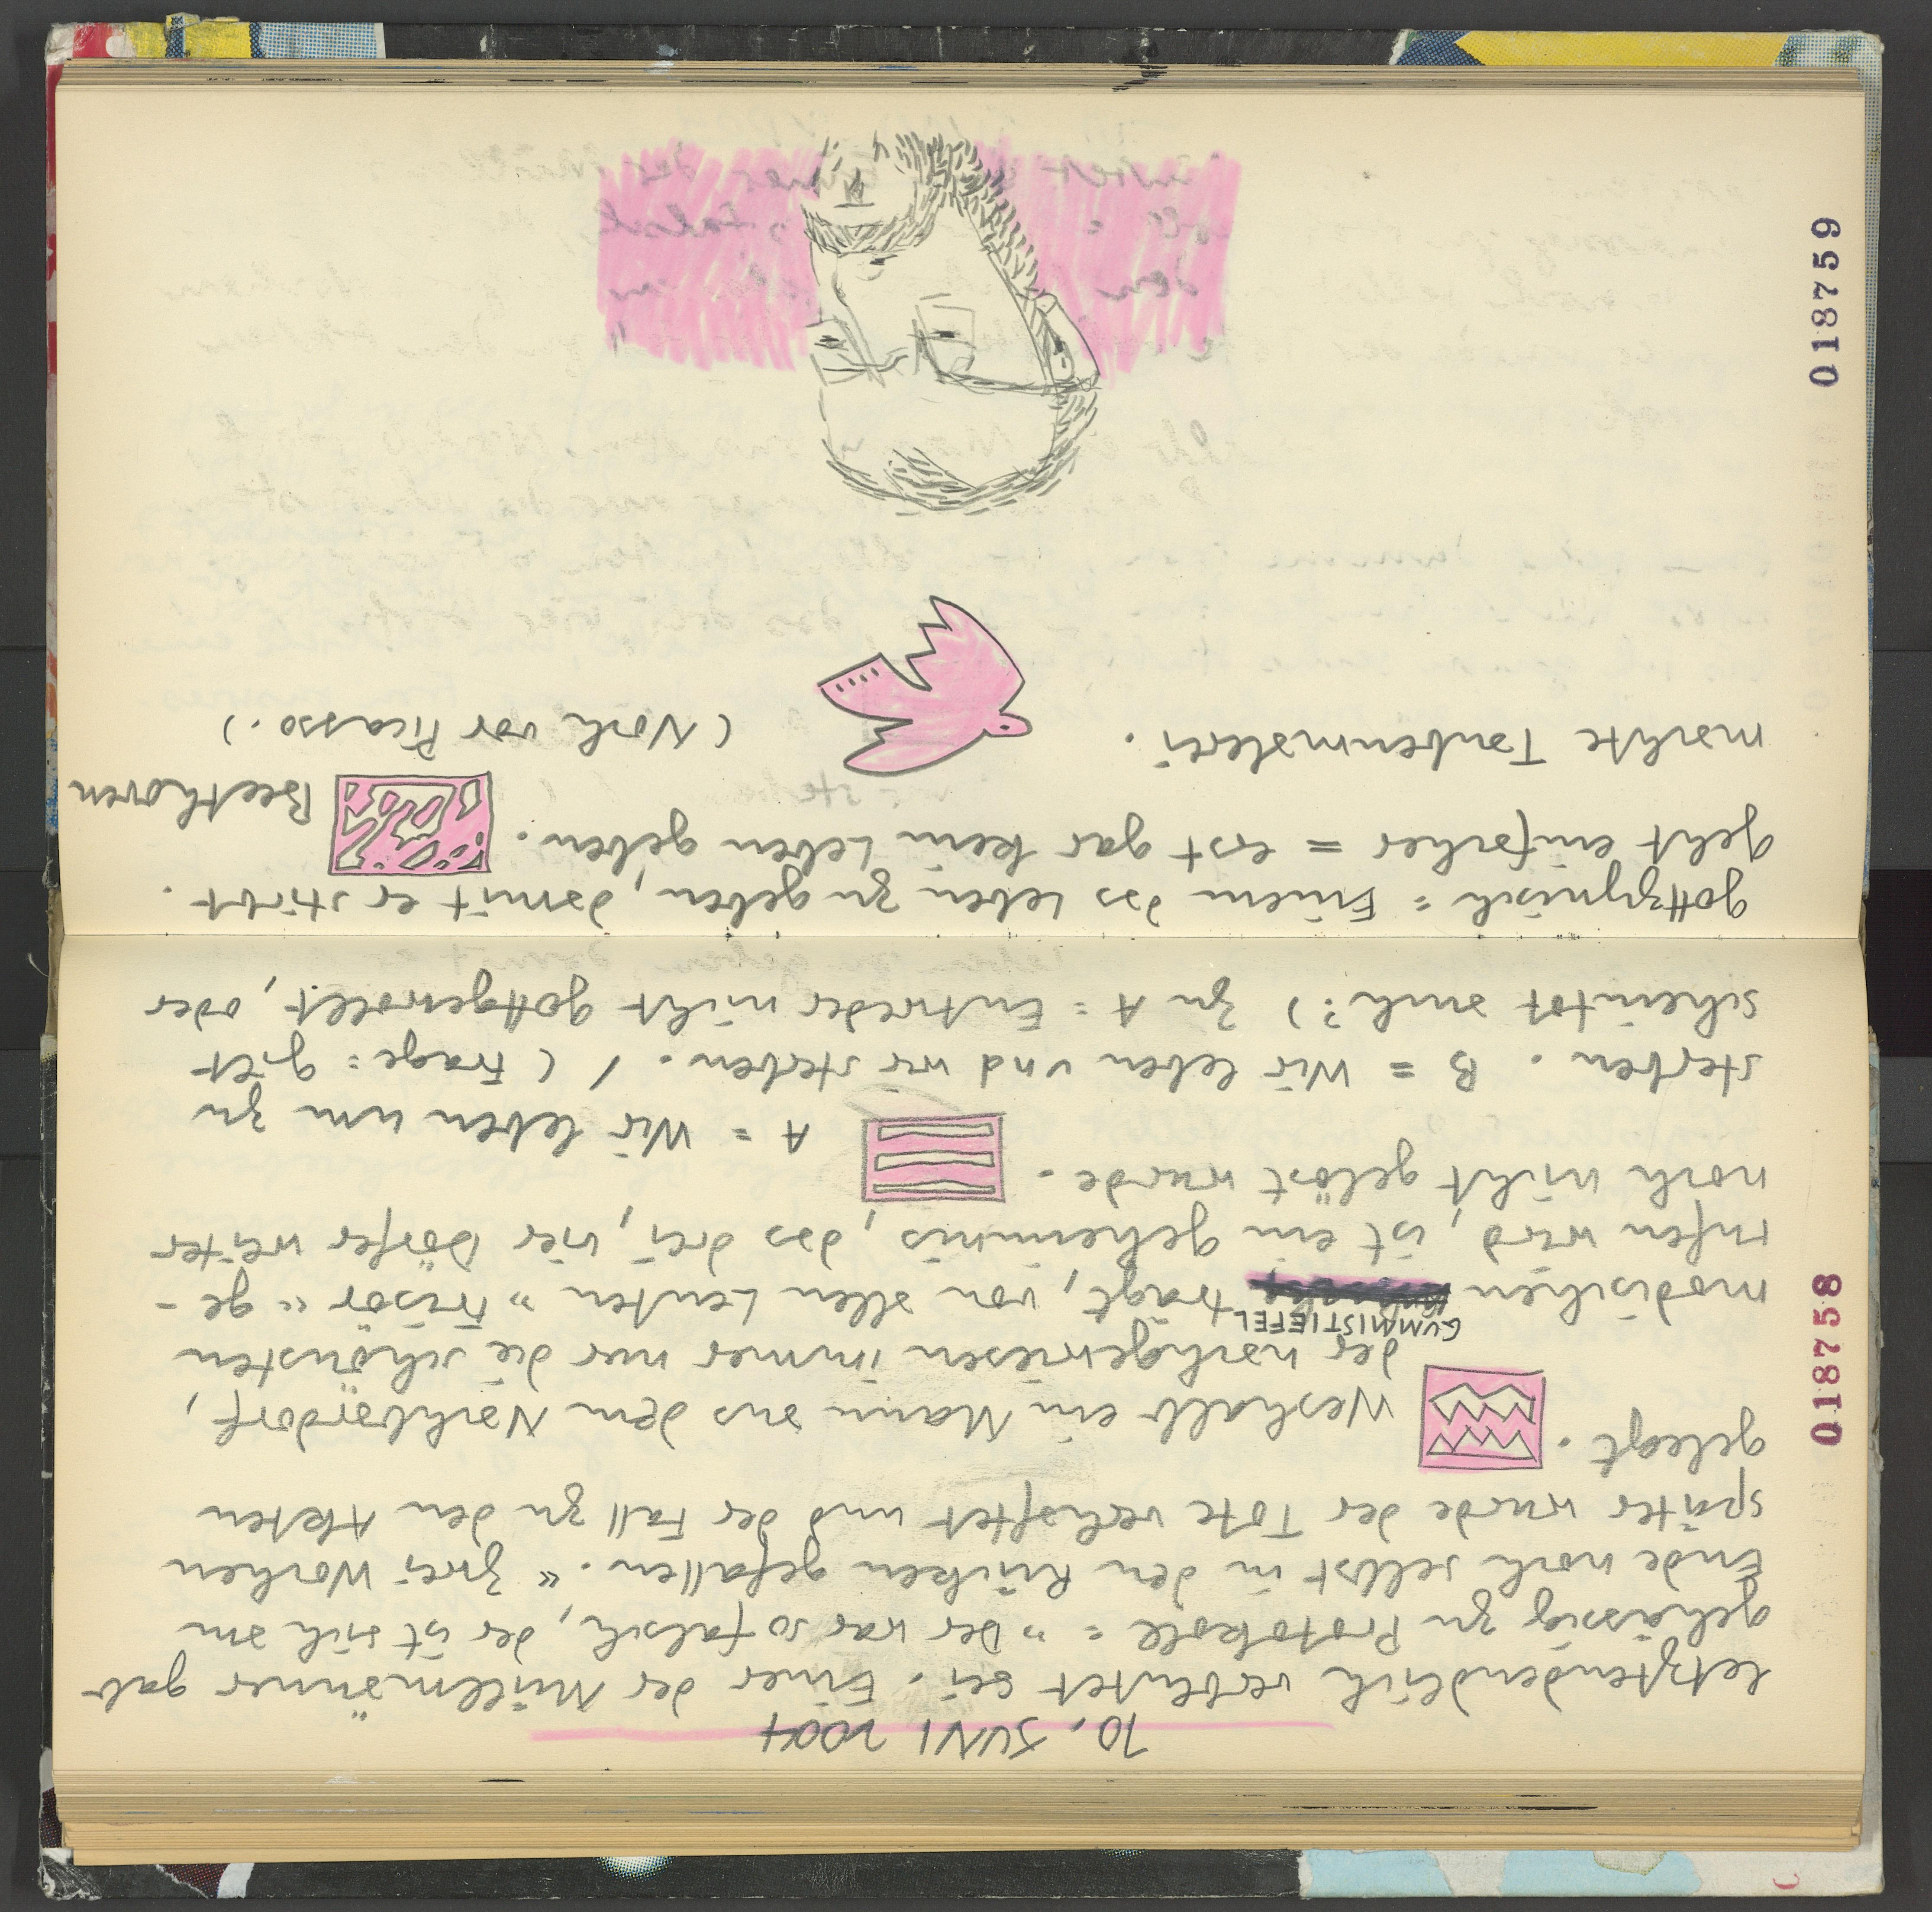 10. JUNI 2004
letztendendlich verblutet sei. Einer der Müllmänner gab
gehässig zu Protokoll = „Der war so falsch, der ist sich am
Ende noch selbst in den Rücken gefallen." Zwei Wochen
später wurde der Tote verhaftet und der Fall zu den Akten
gelegt. Weshalb ein Mann aus dem Nachbardorf,
der nachgewiesen immer nur die schönsten
GUMMISTIEFEL
modischen trägt, von allen Leuten „Frisör" ge-
rufen wird, ist ein Geheimnis, das drei, vier Dörfer weiter
noch nicht gelöst wurde. A = Wir leben um zu
sterben. B = Wir leben und wir sterben. / (Frage = gilt
scheintot auch?) Zu A = Entweder nicht gottgewollt, oder
gottzynisch = Einem das Leben zu geben, damit er stirbt.
Geht einfacher = erst gar kein Leben geben. Beethoven
machte Taubenmalerei. (Noch vor Picasso.)
018758
018759